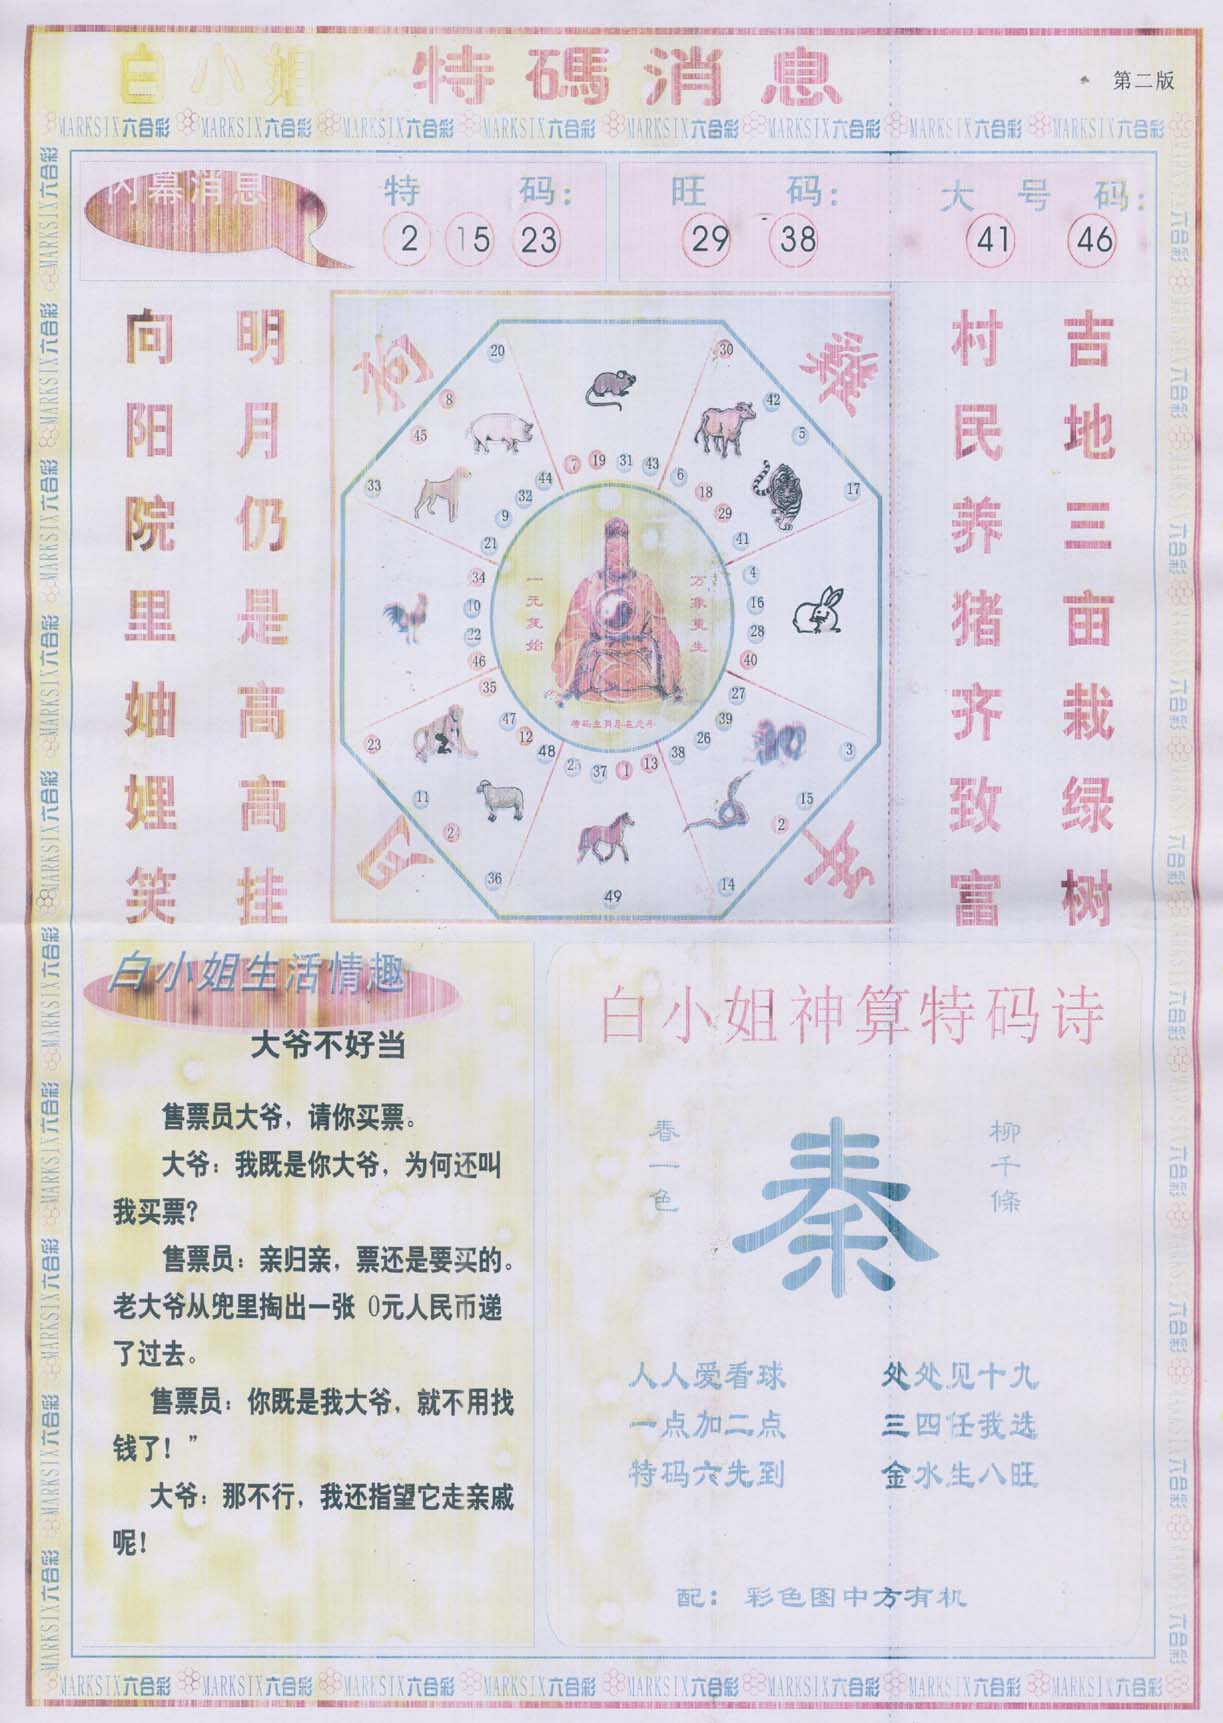 白小姐 特碼消息
第二版
MARKSIX六合彩 MARKSIX六合彩 MARKSIX六合彩 MARKSIX六合彩 MARKSIX六合彩 MARKSIX六合彩 MARKSIX六合彩 MARKSIX六合彩
内幕消息
特 码:
2 15 23
旺 码:
29 38
大 号 码:
41 46
吉地三亩栽绿树
村民养猪齐致富
明月仍是高高挂
向阳院里妯娌笑
20 30
8 42
45 5
33 17
7 19 31 43
44 6
32 18
9 29
21 41
34 4
10 16
22 28
46 40
35 27
47 39
12 26
48 38
25 37 1 13
23 3
11 15
24 2
36 14
49
万象更生
一元复始
白小姐生活情趣
大爷不好当
售票员大爷，请你买票。
大爷：我既是你大爷，为何还叫
我买票？
售票员：亲归亲，票还是要买的。
老大爷从兜里掏出一张 0元人民币递
了过去。
售票员：你既是我大爷，就不用找
钱了！”
大爷：那不行，我还指望它走亲戚
呢！
白小姐神算特码诗
春一色
秦
柳千條
人人爱看球 处处见十九
一点加二点 三四任我选
特码六先到 金水生八旺
配： 彩色图中方有机
MARKSIX六合彩 MARKSIX六合彩 MARKSIX六合彩 MARKSIX六合彩 MARKSIX六合彩 MARKSIX六合彩 MARKSIX六合彩 MARKSIX六合彩